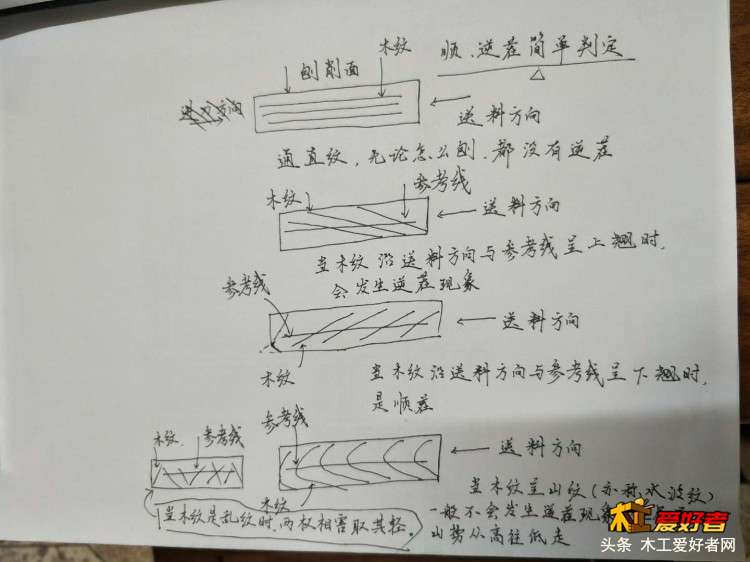 木纹
顺、逆茬简单判定
刨削面
送料方向
通直纹，无论怎么刨、都没有逆茬
参考线
木纹
送料方向
当木纹沿送料方向与参考线呈上翘时，
会发生逆茬现象
参考线
送料方向
木纹
当木纹沿送料方向与参考线呈下翘时，
是顺茬
参考线
木纹
参考线
送料方向
木纹
当木纹呈山纹(亦称水波纹)
当木纹是乱纹时，两权相害取其轻。
一般不会发生逆茬现
山势从高往低走
木工爱好者
头条 木工爱好者网